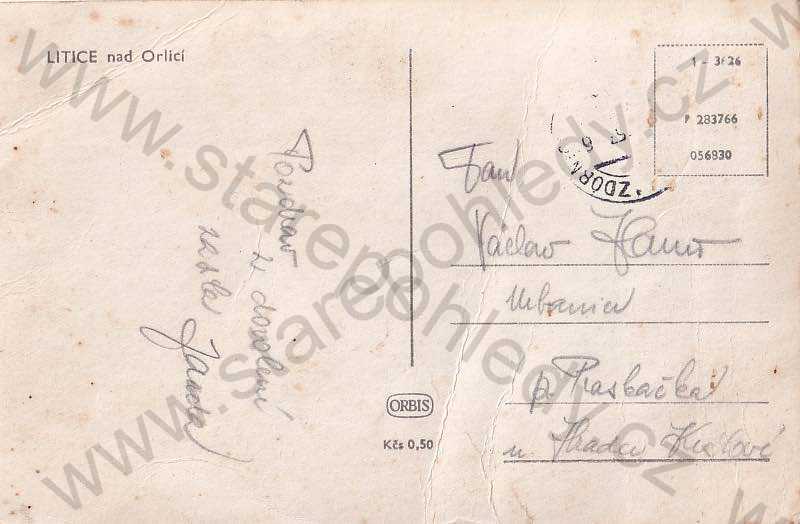 LITICE nad Orlicí
Pozdrav
z dovolení
zasla
Janda
ORBIS
Kčs 0,50
1 - 3626
P 283766
056830
ZDOBNIC
Pan
Václav
Urbanice
p. Praskačka
u Hradce Králové
www.starepohledy.cz